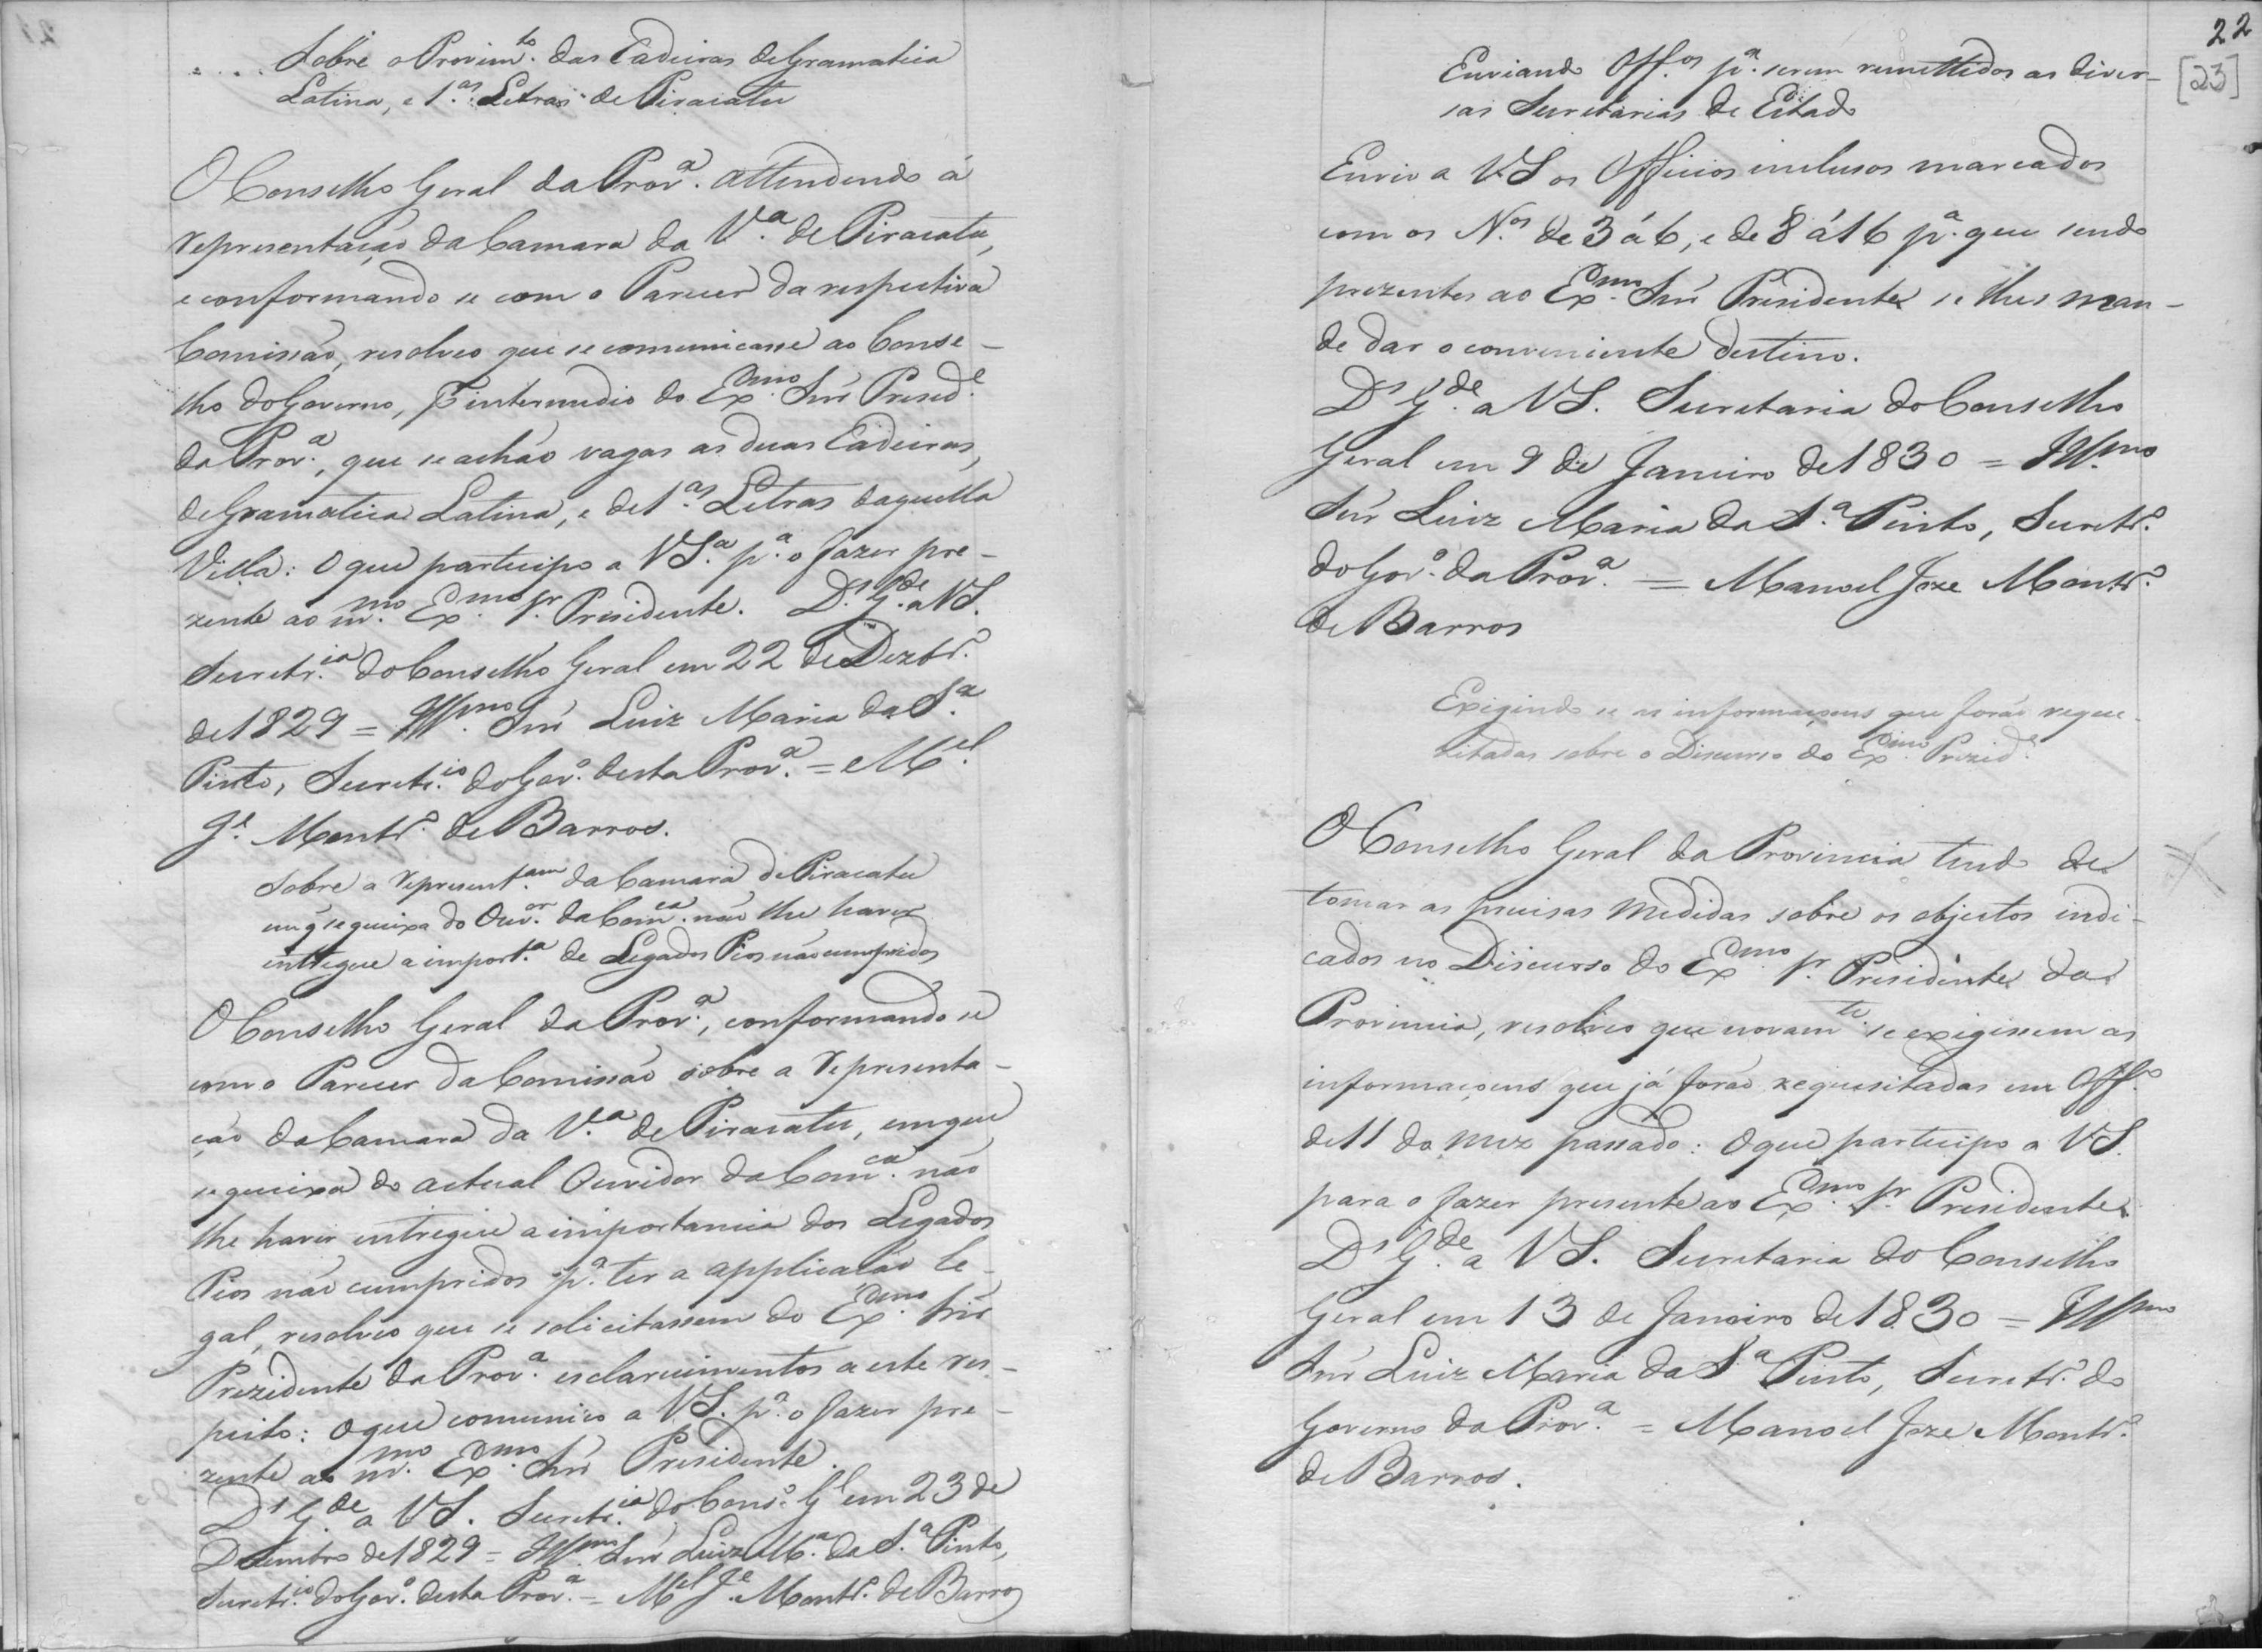 Sobre o Provim.to das Cadeiras de Gramatica
Latina, e 1.as Letras de Piracatu
O Conselho Geral da Prov.a attendendo á
representação da Camara da V.a de Piracatu,
e conformando se com o Parecer da respectiva
Comissão, resolveo que se comunicasse ao Conse-
lho do Governo, p intermedio do Ex.mo Snr Presid.e
da Prov.a, que se achão vagas as duas Cadeiras,
de Gramatica Latina, e de 1.as Letras daquella
Villa: O que participo a VS.a p.a o fazer pre-
zente ao m.mo Ex.mo Sr. Presidente. D.s G.de a VS.
Secretr.ia do Conselho Geral em 22 de Dezbr.o
de 1829 = Ill.mo Snr Luiz Maria da S.a
Pinto, Secretr.io do Gov.o desta Prov.a = M.el
J.e Montr.o de Barros.
Sobre a represent.am da Camara de Piracatu
em q se queixa do Ouv.or da Com.ca não lhe haver
entregue a import.a de Legados Pios não cumpridos
O Conselho Geral da Prov.a, conformando se
com o Parecer da Comissão sobre a representa-
ção da Camara da V.a de Piracatu, em que
se queixa do actual Ouvidor da Com.ca não
lhe haver entregue a importancia dos Legados
Pios não cumpridos p.a ter a applicação le-
gal, resolveo que se solicitassem do Ex.mo Snr
Prezidente da Prov.a esclarecimentos a este res-
peito: O que comunico a VS. p.a o fazer pre-
zente ao m.mo Ex.mo Snr Presidente.
D.s G.de a VS. Secretr.ia do Cons.o G.l em 23 de
Dezembro de 1829 = Ill.mo Snr Luiz M.a da S.a Pinto,
Secretr.io do Gov.o desta Prov.a = M.el J.e Montr.o de Barros
22
[23]
Enviando Off.os p.a serem remettidos as diver-
sas Secretarias de Estado
Envio a VS os Officios inclusos marcados
com os N.os de 3 á 6, e de 8 á 16 p.a que sendo
prezentes ao Ex.mo Snr Presidente se lhes man-
de dar o conveniente destino.
D.s G.de a VS. Secretaria do Conselho
Geral em 9 de Janeiro de 1830 = Ill.mo
Snr Luiz Maria da S.a Pinto, Secretr.o
do Gov.o da Prov.a = Manoel Joze Montr.o
de Barros
Exigindo se as informaçoens que forão reque-
zitadas sobre o Discurso do Ex.mo Prezid.e
O Conselho Geral da Provincia tendo de
tomar as precisas medidas sobre os objectos indi-
cados no Discurso do Ex.mo Sr. Presidente da
Provincia, resolveo que novam.te se exigissem as
informaçoens que já forão requesitadas em Off.o
de 11 do mez passado: O que participo a VS.
para o fazer presente ao Ex.mo Sr. Presidente
D.s G.de a VS. Secretaria do Conselho
Geral em 13 de Janeiro de 1830 = Ill.mo
Snr Luiz Maria da S.a Pinto, Secretr.o do
Governo da Prov.a = Manoel Joze Montr.o
de Barros.